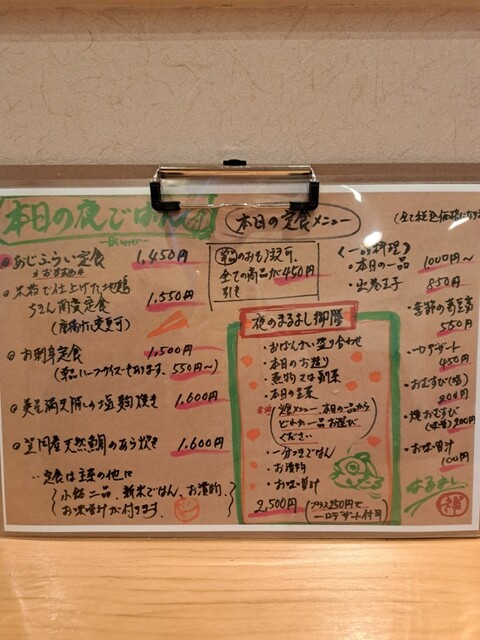 本日の夜ごはん
-dinner-
本日の定食メニュー
あじふらい定食 1,450円
米粉で仕上げた地鶏
ちきん南蛮定食 1,550円
(唐揚げに変更可)
お刺身定食 1,500円
(単品ハーフサイズもあります。550円〜)
塩麹焼き 1,600円
天然鯛のあら炊き 1,600円
定食は主菜の他に
小鉢二品、新米ごはん、お漬物、
お味噌汁が付きます。
単品のみもご注文可。
全ての商品が450円
引き
夜のまるよし御膳
・おばんざい盛り合わせ
・本日のお造り
・煮物又は副菜
・本日の主菜
メニュー、本日の一品から
どれか一品お選び
ください
・ごはん
・お漬物
・お味噌汁
2,500円
(プラス250円で
デザート付)
《一品料理》
・本日の一品 1000円〜
・出巻玉子 850円
550円
・デザート 450円
・おむすび(塩)
200円
・焼おむすび
(味噌) 200円
・お味噌汁
100円